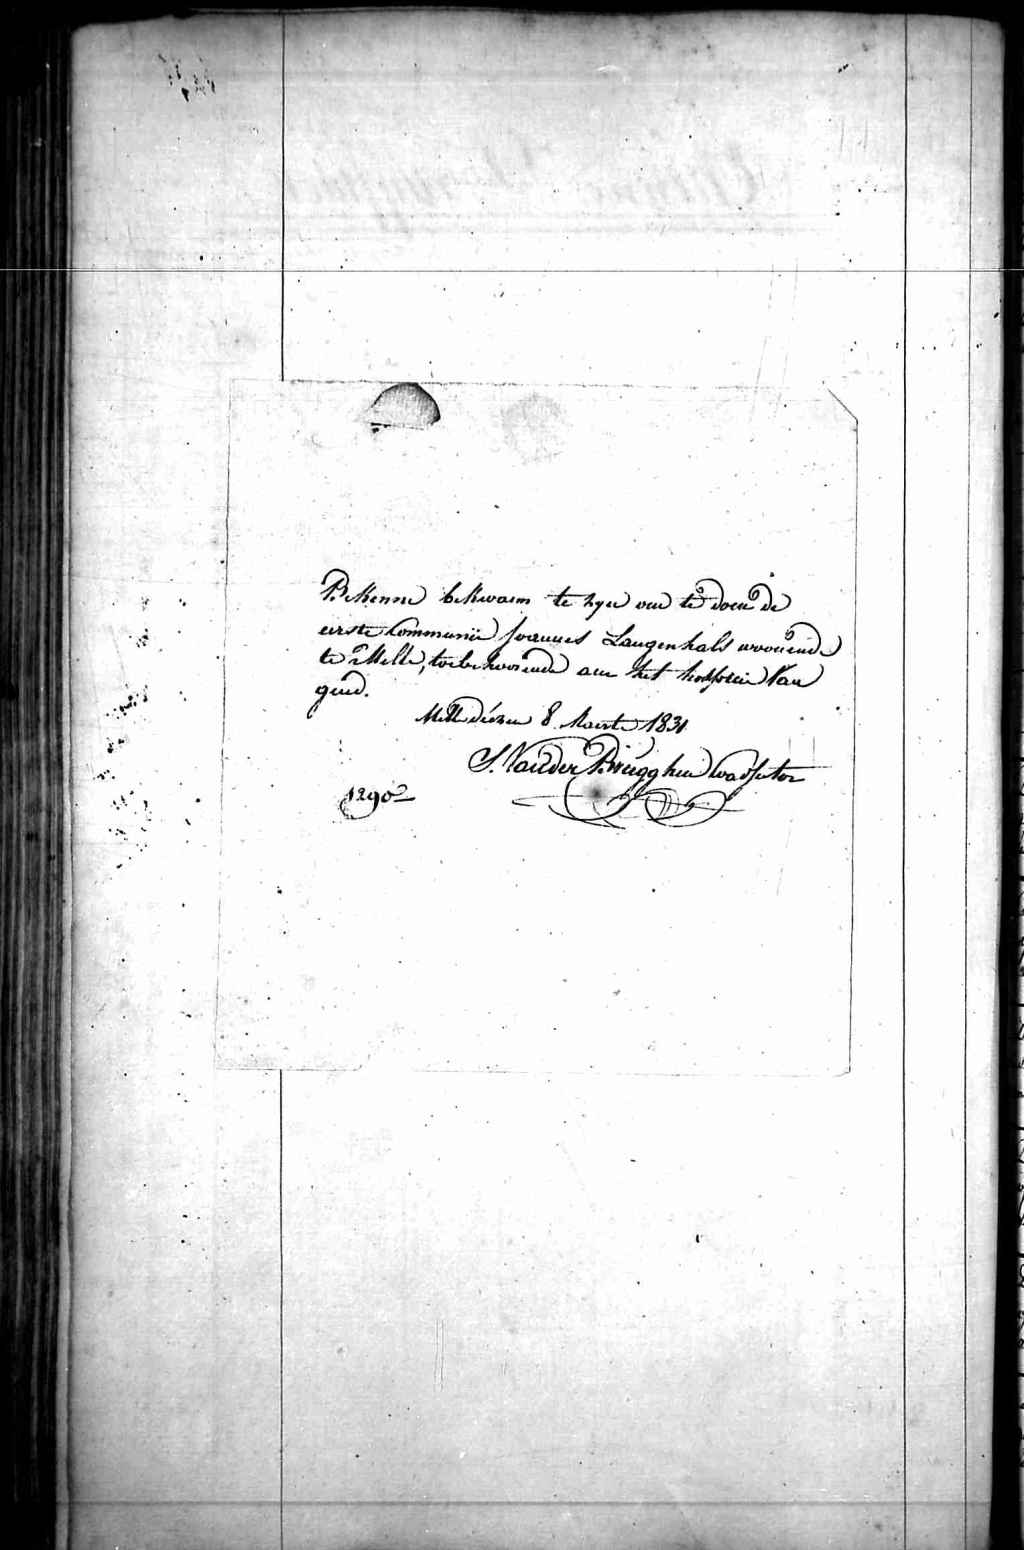 Bekenne bekwaem te zyn om te doen de
eerste Communie Joannes Langenhals woonende
te Melle, toebehoorende aen het hospicie Van
gend.
Melle dezen 8 Maerte 1831
J. Vander Brugghen Coadjutor
1290